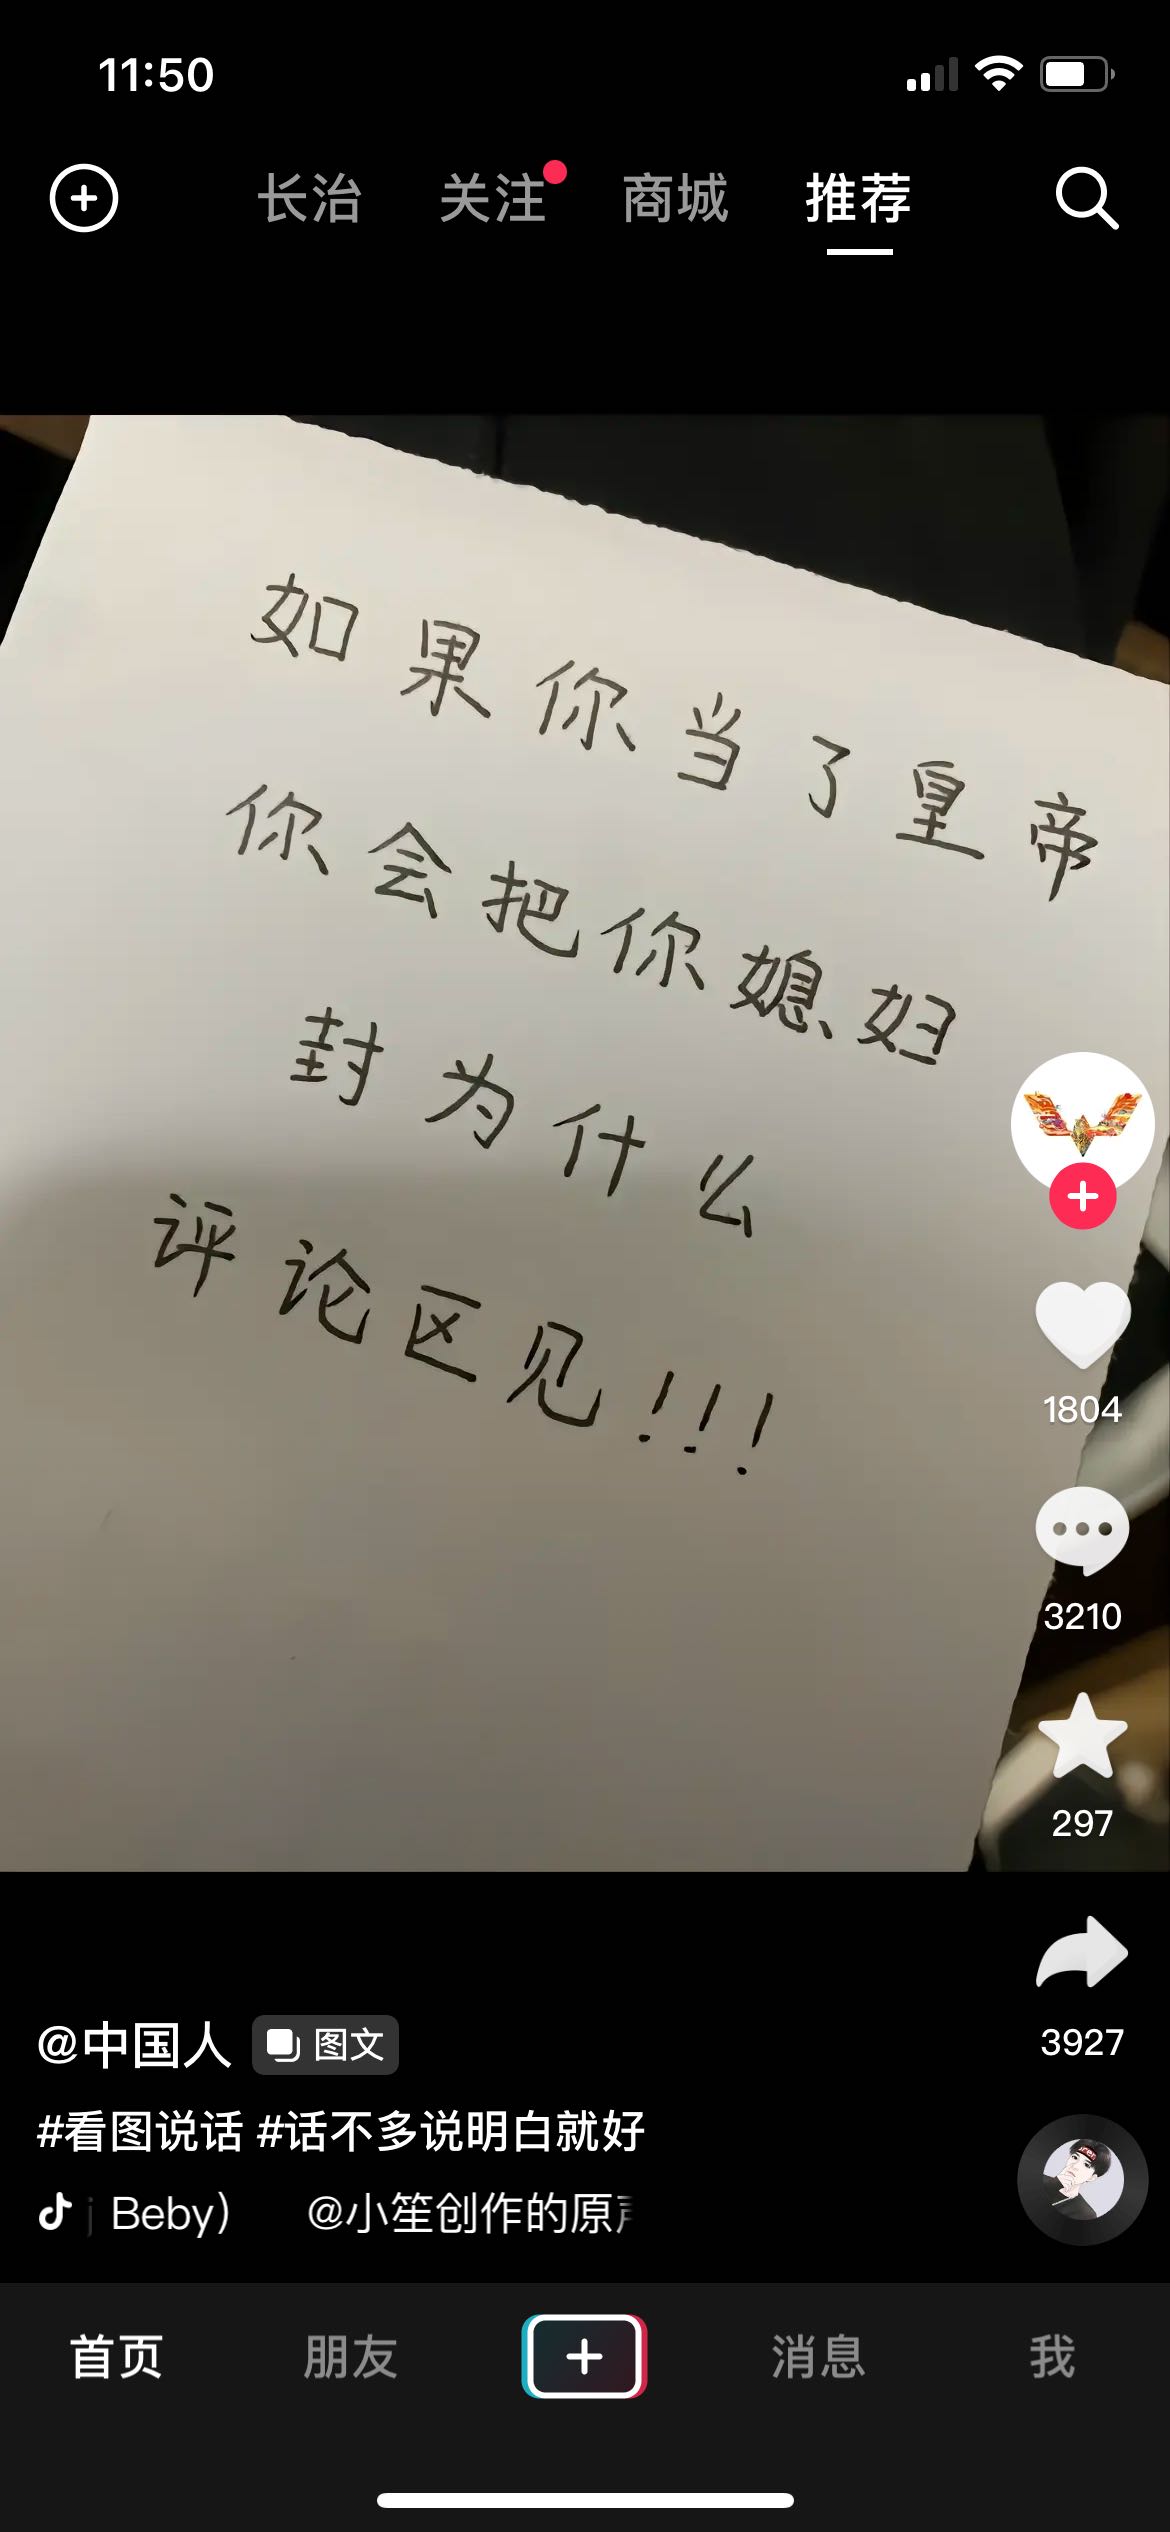 11:50
长治 关注 商城 推荐
如果你当了皇帝
你会把你媳妇
封为什么
评论区见!!!
1804
3210
297
3927
@中国人 图文
#看图说话 #话不多说明白就好
Beby) @小笙创作的原
首页 朋友 消息 我